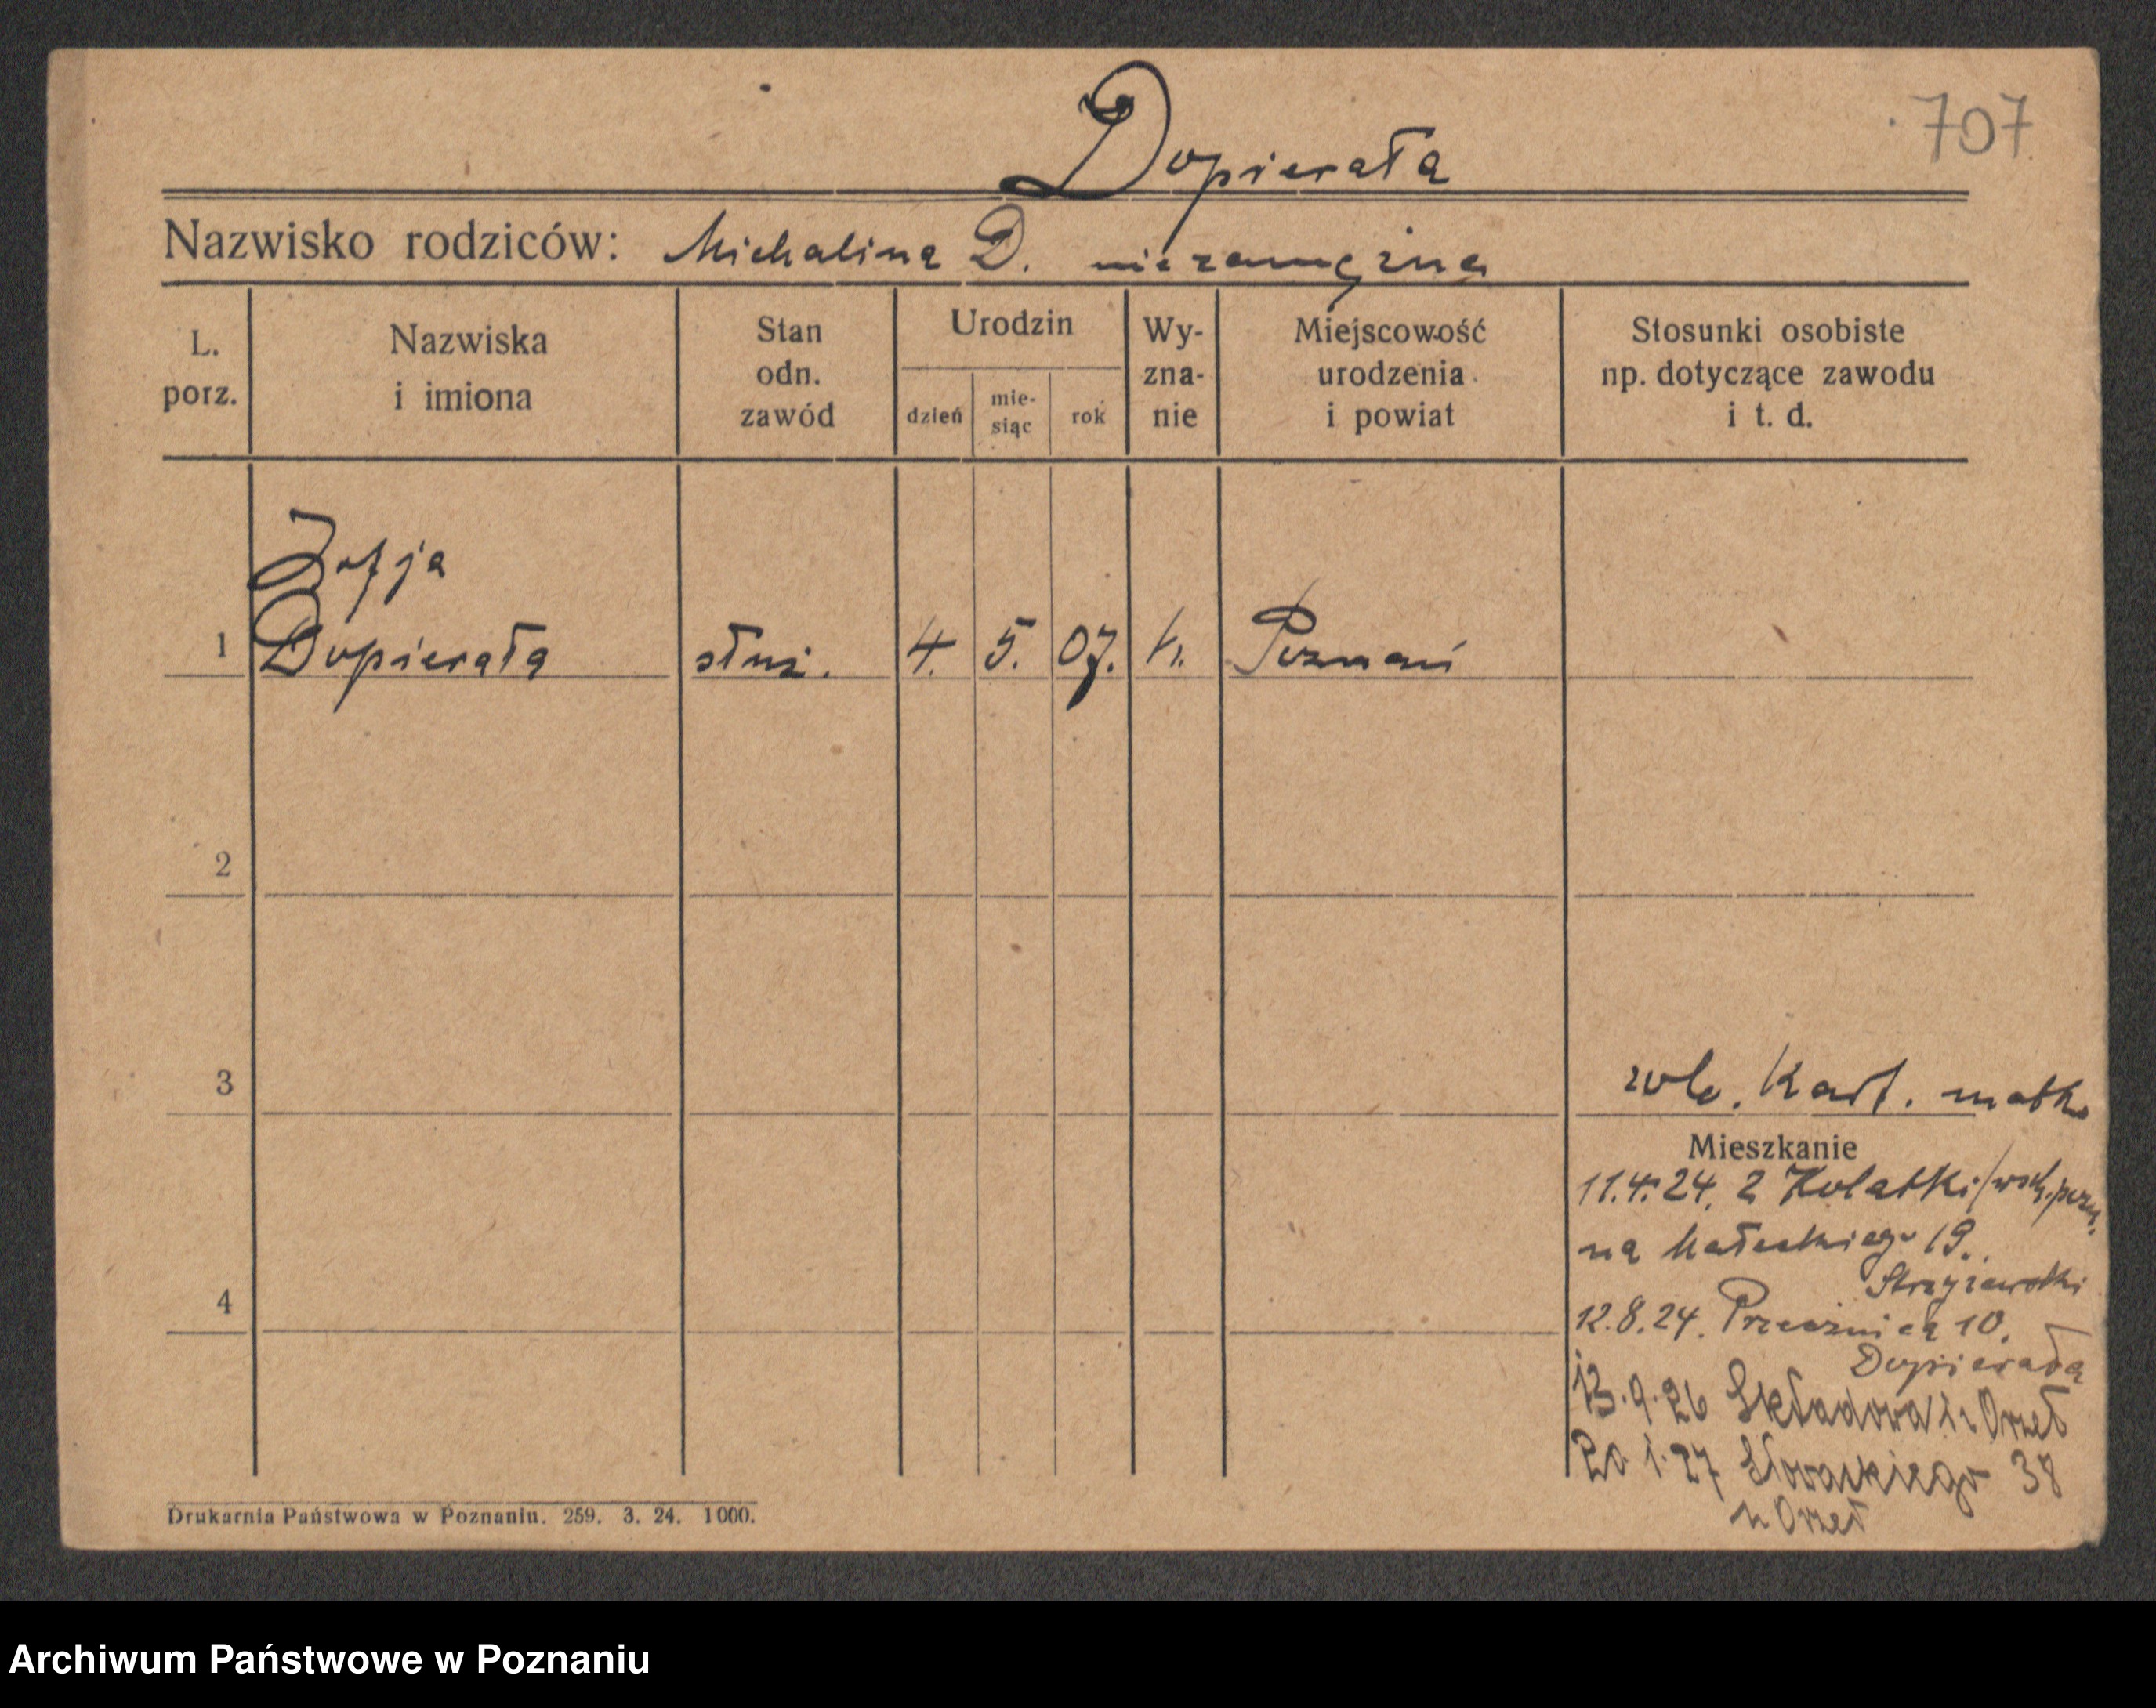 Dopierała
707
Nazwisko rodziców: Michalina D. niezamężna
L. porz.
Nazwiska i imiona
Stan odn. zawód
Urodzin
dzień
mie-siąc
rok
Wy-zna-nie
Miejscowość urodzenia i powiat
Stosunki osobiste np. dotyczące zawodu i t. d.
Zofja
1 Dopierała służ. 4. 5. 07. k. Poznań
2
3
Kart. matka
Mieszkanie
11.4.24. z Kobatki
na Małeckiego 19.
4
12.8.24. Przecznica 10.
Dopierała
13.9.26 Składowa Orzeł
20 1.27 Słowackiego 38
u Orzeł
Drukarnia Państwowa w Poznaniu. 259. 3. 24. 1000.
Archiwum Państwowe w Poznaniu